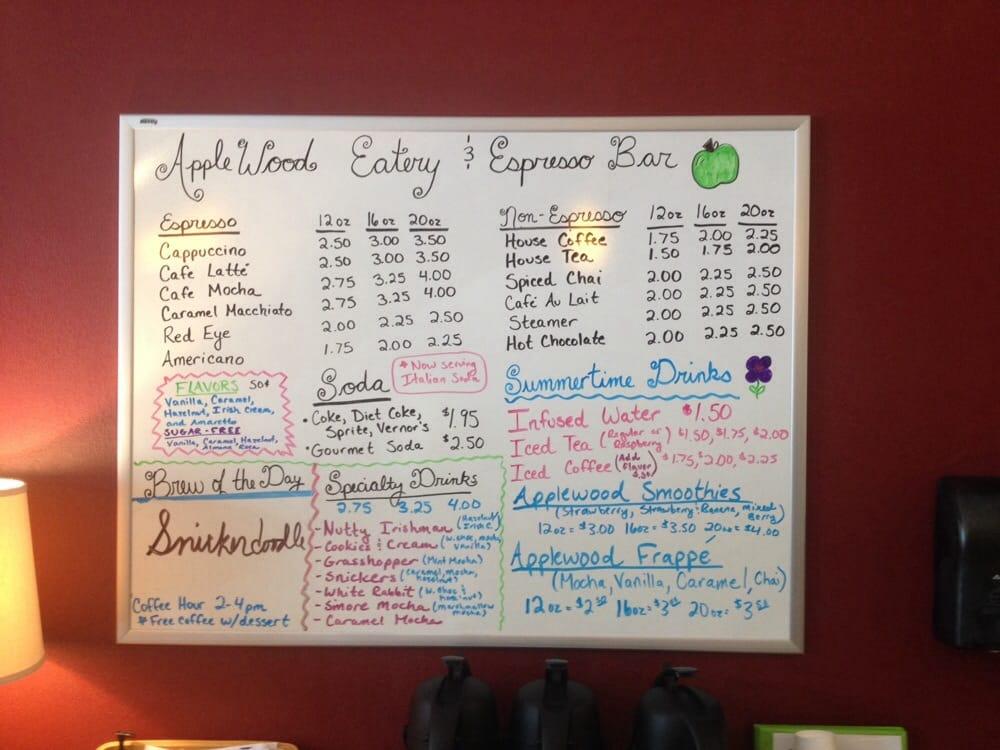 AppleWood Eatery & Espresso Bar
Espresso 12oz 16oz 20oz
Cappuccino 2.50 3.00 3.50
Cafe Latté 2.50 3.00 3.50
Cafe Mocha 2.75 3.25 4.00
Caramel Macchiato 2.75 3.25 4.00
Red Eye 2.00 2.25 2.50
Americano 1.75 2.00 2.25
FLAVORS 50¢
Vanilla, Caramel,
Hazelnut, Irish Cream,
and Amaretto
SUGAR-FREE
Vanilla, Caramel, Hazelnut,
Almond Roca
Soda
* Now serving
Italian Soda
• Coke, Diet Coke,
Sprite, Vernor's $1.95
• Gourmet Soda $2.50
Non-Espresso 12oz 16oz 20oz
House Coffee 1.75 2.00 2.25
House Tea 1.50 1.75 2.00
Spiced Chai 2.00 2.25 2.50
Café Au Lait 2.00 2.25 2.50
Steamer 2.00 2.25 2.50
Hot Chocolate 2.00 2.25 2.50
Summertime Drinks
Infused Water $1.50
Iced Tea (Regular or Raspberry) $1.50, $1.75, $2.00
Iced Coffee (Add flavor $.50) $1.75, $2.00, $2.25
Applewood Smoothies
(Strawberry, Strawberry-Banana, mixed Berry)
12oz = $3.00 16oz = $3.50 20oz = $4.00
Applewood Frappé
(Mocha, Vanilla, Caramel, Chai)
12oz = $2 16oz = $3 20oz = $3
Brew of the Day
Snickerdoodle
Coffee Hour 2-4pm
* Free coffee w/dessert
Specialty Drinks
2.75 3.25 4.00
- Nutty Irishman (Hazelnut, Irish C.)
- Cookies & Cream (w. choc, mocha, vanilla)
- Grasshopper (Mint Mocha)
- Snickers (caramel, mocha, hazelnut)
- White Rabbit (w. choc & hazelnut)
- Smore Mocha (marshmallow mocha)
- Caramel Mocha